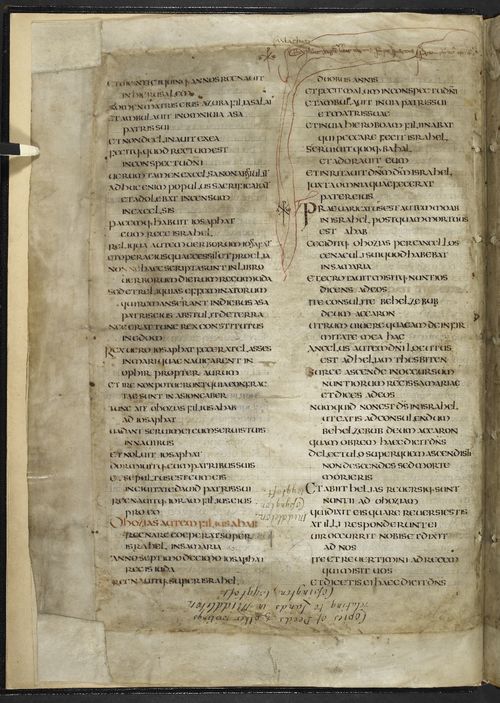 ETUIENTIETQUINQ· ANNOS REGNAUIT
IN HIERUSALEM
NOMEN MATRIS EIUS AZUBA FILIA SALAI
ET AMBULAUIT IN OMNI UIA ASA
PATRIS SUI
ET NON DECLINAUIT EX EA
FECITQ· QUOD RECTUM EST
IN CONSPECTU DNI
UERUM TAMEN EXCELSA NON ABSTULIT
AD HUC ENIM POPULUS SACRIFICABAT
ET ADOLEBAT INCENSUM
IN EXCELSIS
PACEMQ· HABUIT IOSAPHAT
CUM REGE ISRAHEL
RELIQUA AUTEM UERBORUM IOSAPHAT
ET OPERA EIUS QUAE GESSIT ET PROELIA
NONNE HAEC SCRIPTA SUNT IN LIBRO
UERBORUM DIERUM REGUM IUDA
SED ET RELIQUIAS EFFEMINATORUM
QUI REMANSERANT IN DIEBUS ASA
PATRIS EIUS ABSTULIT DE TERRA
NEC ERAT TUNC REX CONSTITUTUS
IN EDOM
REX UERO IOSAPHAT FECERAT CLASSES
IN MARI QUAE NAUIGARENT IN
OPHIR PROPTER AURUM
ET IRE NON POTUERUNT QUIA CONFRAC
TAE SUNT IN ASIONGABER
TUNC AIT OHOZIAS FILIUS AHAB
AD IOSAPHAT
UADANT SERUI MEI CUM SERUIS TUIS
IN NAUIBUS
ET NOLUIT IOSAPHAT
DORMIUITQ· CUM PATRIBUS SUIS
ET SEPULTUS EST CUM EIS
IN CIUITATE DAUID PATRIS SUI
REGNAUITQ· IORAM FILIUS EIUS
PRO EO
OHOZIAS AUTEM FILIUS AHAB
REGNARE COEPERAT SUPER
ISRAHEL IN SAMARIA
ANNO SEPTIMO DECIMO IOSAPHAT
REGIS IUDA
REGNAUITQ· SUPER ISRAHEL
DUOBUS ANNIS
ET FECIT MALUM IN CONSPECTU DNI
ET AMBULAUIT IN UIA PATRIS SUI
ET MATRIS SUAE
ET IN UIA HIEROBOAM FILII NABAT
QUI PECCARE FECIT ISRAHEL
SERUIUIT QUOQ· BAHAL
ET ADORAUIT EUM
ET INRITAUIT DNM DM ISRAHEL
IUXTA OMNIA QUAE FECERAT
PATER EIUS
PRAEUARICATUS EST AUTEM MOAB
IN ISRAHEL POSTQUAM MORTUUS
EST AHAB
CECIDITQ· OHOZIAS PER CANCELLOS
CENACULI SUI QUOD HABEBAT
IN SAMARIA
ET AEGROTAUIT MISITQ· NUNTIOS
DICENS AD EOS
ITE CONSULITE BEHELZEBUB
DEUM ACCARON
UTRUM UIUERE QUEAM DE INFIR
MITATE MEA HAC
ANGELUS AUTEM DNI LOCUTUS
EST AD HELIAM THESBITEN
SURGE ASCENDE IN OCCURSUM
NUNTIORUM REGIS SAMARIAE
ET DICES AD EOS
NUMQUID NON EST DS IN ISRAHEL
UT EATIS AD CONSULENDUM
BEHELZEBUB DEUM ACCARON
QUAM OBREM HAEC DICIT DNS
DE LECTULO SUPER QUEM ASCENDISTI
NON DESCENDES SED MORTE
MORIERIS
ET ABIIT HELIAS REUERSIQ· SUNT
NUNTII AD OHOZIAM
QUI DIXIT EIS QUARE REUERSI ESTIS
AT ILLI RESPONDERUNT EI
UIR OCCURRIT NOBIS ET DIXIT
AD NOS
ITE ET REUERTIMINI AD REGEM
QUI MISIT UOS
ET DICETIS EI HAEC DICIT DNS
Middleton
Cossington
Copies of Deeds & other writings
relating to Lands in Middleton
Cossington,